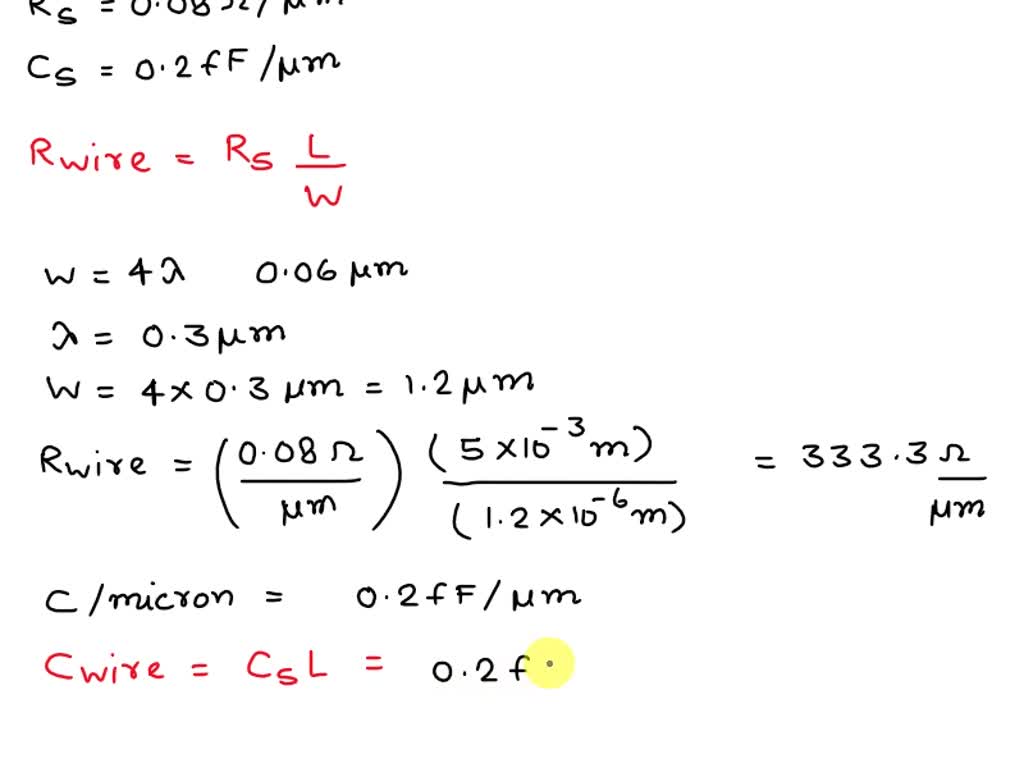 Rs = 0.08 Ω/μm
Cs = 0.2 fF/μm
Rwire = Rs L/W
W = 4λ 0.06 μm
λ = 0.3 μm
W = 4 × 0.3 μm = 1.2 μm
Rwire = (0.08 Ω/μm) (5 × 10⁻³ m)/(1.2 × 10⁻⁶ m) = 333.3 Ω/μm
C/micron = 0.2 fF/μm
Cwire = CsL = 0.2 f